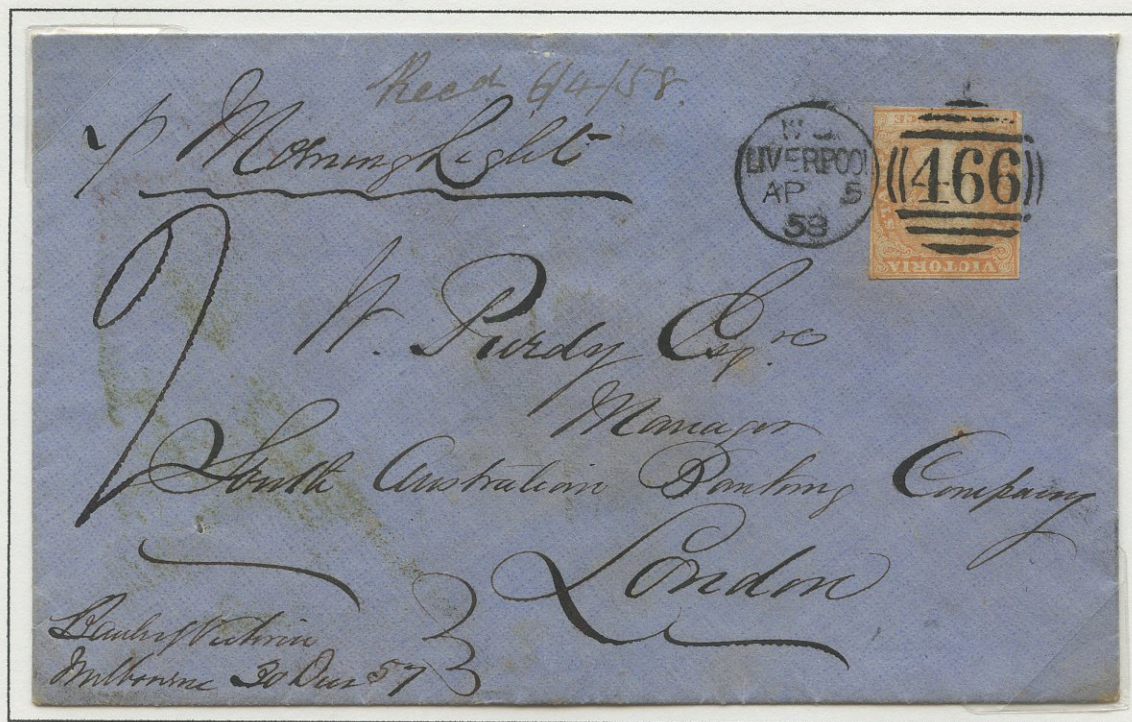 Recd 6/4/58.
p Morning Light
LIVERPOOL
AP 5
58
466
VICTORIA
W. Purdy Esqre
Manager
South Australian Banking Company
London
Bank of Victoria
Melbourne 30 Decr 57